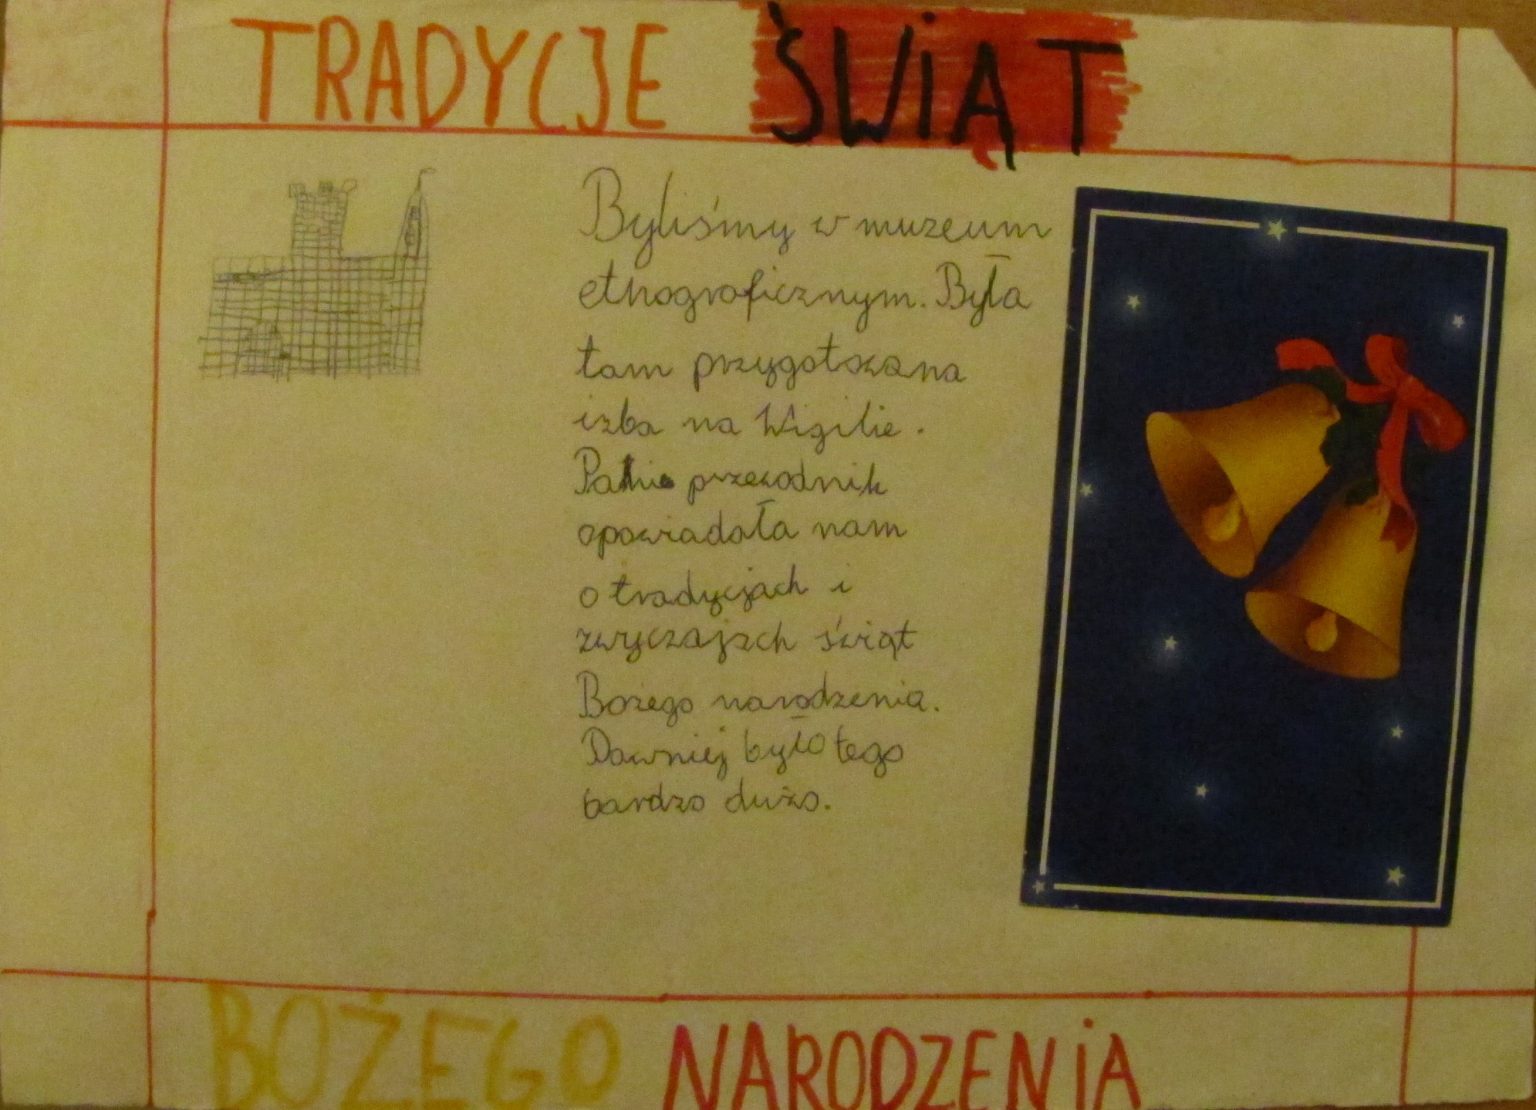 TRADYCJE ŚWIĄT
Byliśmy w muzeum
etnograficznym. Była
tam przygotowana
izba na Wigilie.
Pani przewodnik
opowiadała nam
o tradycjach i
zwyczajach świąt
Bożego narodzenia.
Dawniej było tego
bardzo dużo.
BOŻEGO NARODZENiA